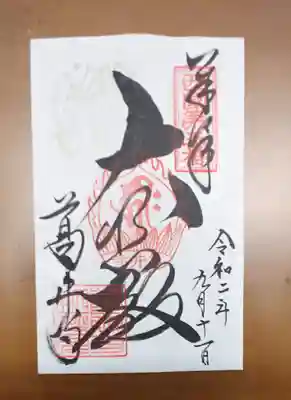 奉拝
令和二年
九月十一日
大悲殿
葛井寺